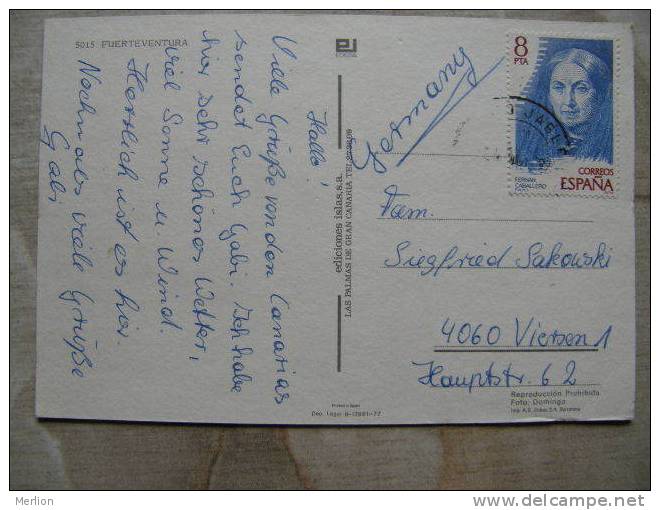 5015 FUERTEVENTURA
Hallo!
Viele Grüße von den Canarias
sendet Euch Gabi. Ich habe
hier sehr schönes Wetter,
viel Sonne u Wind.
Herrlich ist es hier.
Nochmals viele Grüße
Gabi
ediciones islas,s.a.
LAS PALMAS DE GRAN CANARIA
Printed in Spain
Dep. Legal B-12981-77
Germany
8
PTA
CORREOS
ESPAÑA
FERNAN
CABALLERO
Fam.
Siegfried Sakowski
4060 Viersen 1
Hauptstr. 62
Reproducción Prohibida
Foto: Domingo
Merlion
www.delcampe.net